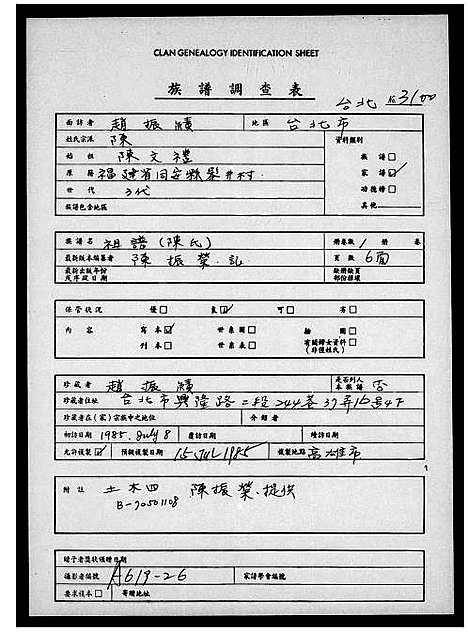 CLAN GENEALOGY IDENTIFICATION SHEET
族譜調查表
台北 № 3100
面訪者 趙振績 地區 台北市
姓氏宗派 陳 資料類別
始祖 陳文禮 族譜□
原籍 福建省同安縣 井村 家譜☑
世代 3代 功德榜□
族譜包含地區 其他
族譜名 祖譜(陳氏) 冊卷數 1 冊 卷
最新版本編纂者 陳振榮.記 頁數 6面
最新出版年份及序跋日期 缺冊缺頁部份描述
保管狀況 優□ 良☑ 可□ 劣□
內容 寫本☑ 世系圖□ 插圖□
刊本□ 世系表□ 有關婦女資料□(非僅姓氏)
珍藏者 趙振績 是否列入本族譜 否
珍藏者住址 台北市興隆路二段244巷37弄16號4F
珍藏者在(家)宗族中之地位 介紹者
初訪日期 1985.July 8 覆訪日期 續訪日期
允許複製☑ 預擬複製日期 15 Jul 1985 複製地點 高雄市
附註 土木四 陳振榮.提供
B-70501108
贈予者獎狀頒贈日期
攝影者編號 A619-26 家譜學會編號
要求樣本□ 寄贈地址